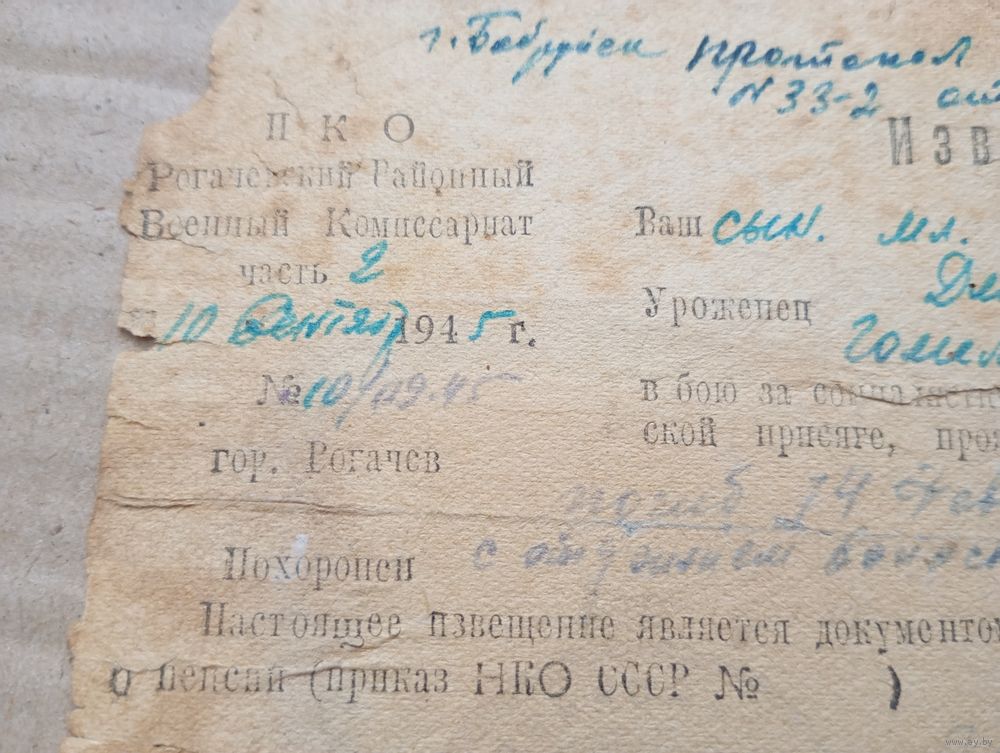 г. Бабруйск протокол
N 33-2 от
Изв
НКО
Рогачевский Районный
Военный Комиссариат
часть 2
10 Сентябр 1945 г.
№ 10/09.45
гор. Рогачев
Ваш сын. мл.
Уроженец
Гомел
в бою за социалисти
ской присяге, проя
погиб 14
Похоронен с
Настоящее извещение является документом
о пенсии (приказ НКО СССР № )
www.ay.by